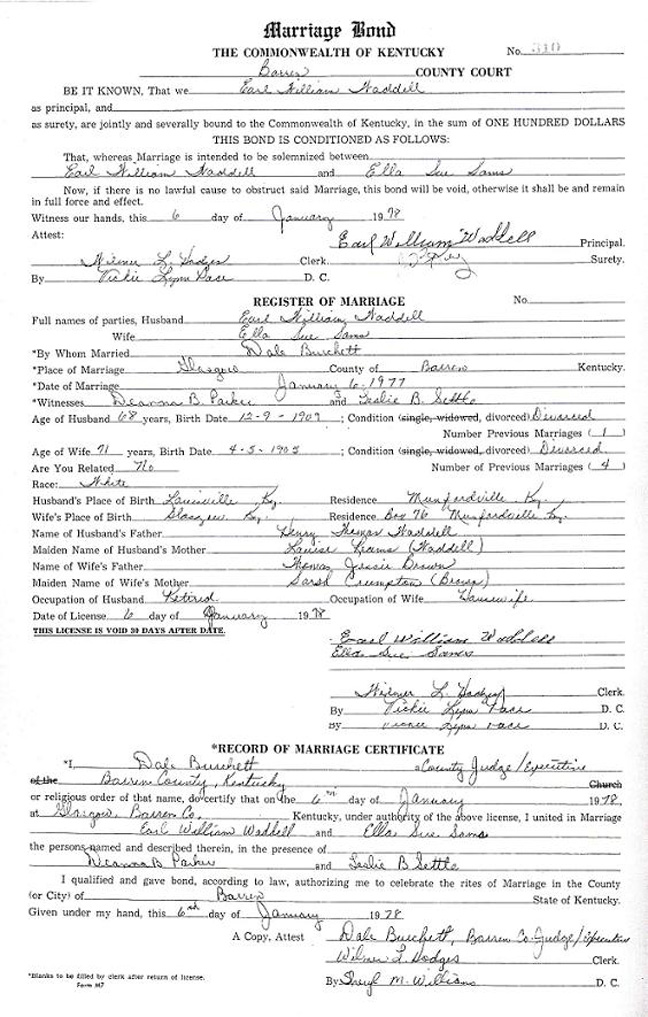 Marriage Bond
THE COMMONWEALTH OF KENTUCKY No. 310
Barren COUNTY COURT
BE IT KNOWN, That we Earl William Waddell
as principal, and
as surety, are jointly and severally bound to the Commonwealth of Kentucky, in the sum of ONE HUNDRED DOLLARS
THIS BOND IS CONDITIONED AS FOLLOWS:
That, whereas Marriage is intended to be solemnized between
Earl William Waddell and Ella Sue Sams
Now, if there is no lawful cause to obstruct said Marriage, this bond will be void, otherwise it shall be and remain
in full force and effect.
Witness our hands, this 6 day of January 1978
Attest: Earl William Waddell Principal.
Wilmer L. Hodges Clerk. Surety.
By Vickie Lynn Pace D. C.
REGISTER OF MARRIAGE No.
Full names of parties, Husband Earl William Waddell
Wife Ella Sue Sams
*By Whom Married Dale Burchett
*Place of Marriage Glasgow County of Barren Kentucky.
*Date of Marriage January 6-1977
*Witnesses Deanna B. Parker and Leslie B. Settle
Age of Husband 68 years, Birth Date 12-9-1909; Condition (single, widowed, divorced) Divorced
Number Previous Marriages (1)
Age of Wife 71 years, Birth Date 4-5-1905; Condition (single, widowed, divorced) Divorced
Are You Related No Number of Previous Marriages (4)
Race: White
Husband's Place of Birth Louisville Ky. Residence Munfordville Ky.
Wife's Place of Birth Glasgow Ky. Residence Box 76 Munfordville Ky.
Name of Husband's Father Henry Thomas Waddell
Maiden Name of Husband's Mother Louise (Waddell)
Name of Wife's Father Thomas Jessie Brown
Maiden Name of Wife's Mother Sarah Crumpton (Brown)
Occupation of Husband Retired Occupation of Wife Housewife
Date of License 6 day of January 1978
THIS LICENSE IS VOID 30 DAYS AFTER DATE.
Earl William Waddell
Ella Sue Sams
Wilmer L. Hodges Clerk.
By Vickie Lynn Pace D. C.
By Vickie Lynn Pace D. C.
*RECORD OF MARRIAGE CERTIFICATE
*I, Dale Burchett a County Judge/Executive
of the Barren County, Kentucky Church
or religious order of that name, do certify that on the 6th day of January 1978,
at Glasgow, Barren Co. Kentucky, under authority of the above license, I united in Marriage
Earl William Waddell and Ella Sue Sams
the persons named and described therein, in the presence of
Deanna B. Parker and Leslie B Settle
I qualified and gave bond, according to law, authorizing me to celebrate the rites of Marriage in the County
(or City) of Barren State of Kentucky.
Given under my hand, this 6th day of January 1978
A Copy, Attest Dale Burchett, Barren Co. Judge/Executive
Wilmer L. Hodges Clerk.
*Blanks to be filled by clerk after return of license. By Sheryl M. Williams D. C.
Form M7